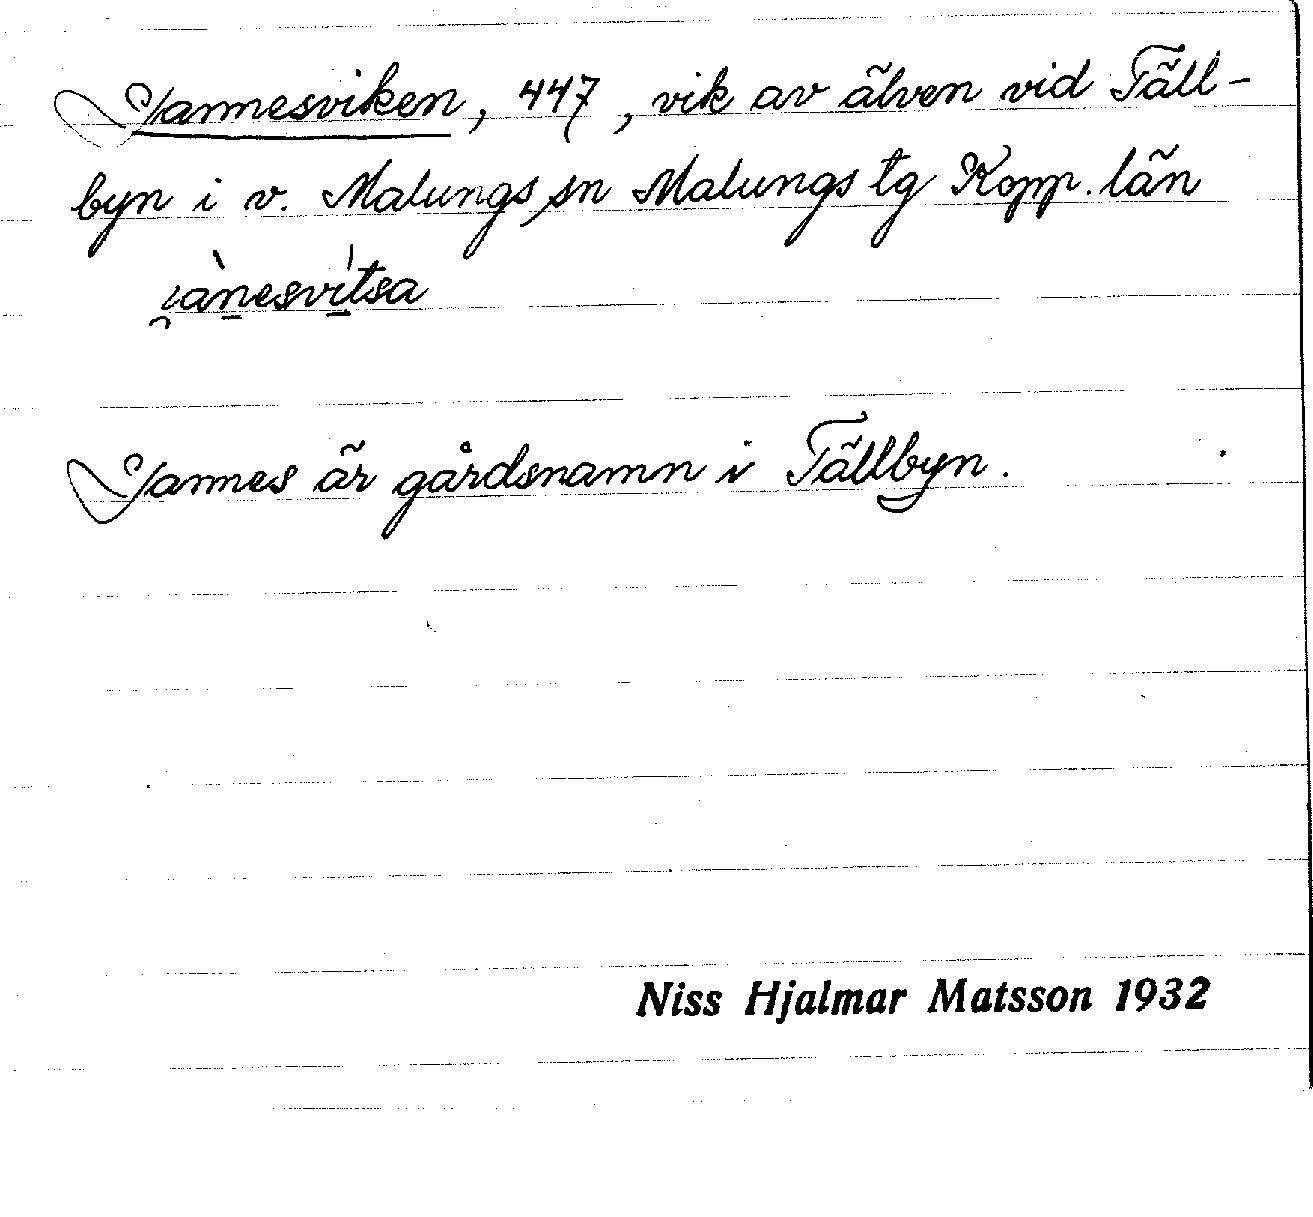 Jannesviken, 447, vik av älven vid Täll-
byn i v. Malungs sn Malungs tg Kopp. län
i̯àn̲esvi̲̍tsa
Jannes är gårdsnamn i Tällbyn.
Niss Hjalmar Matsson 1932